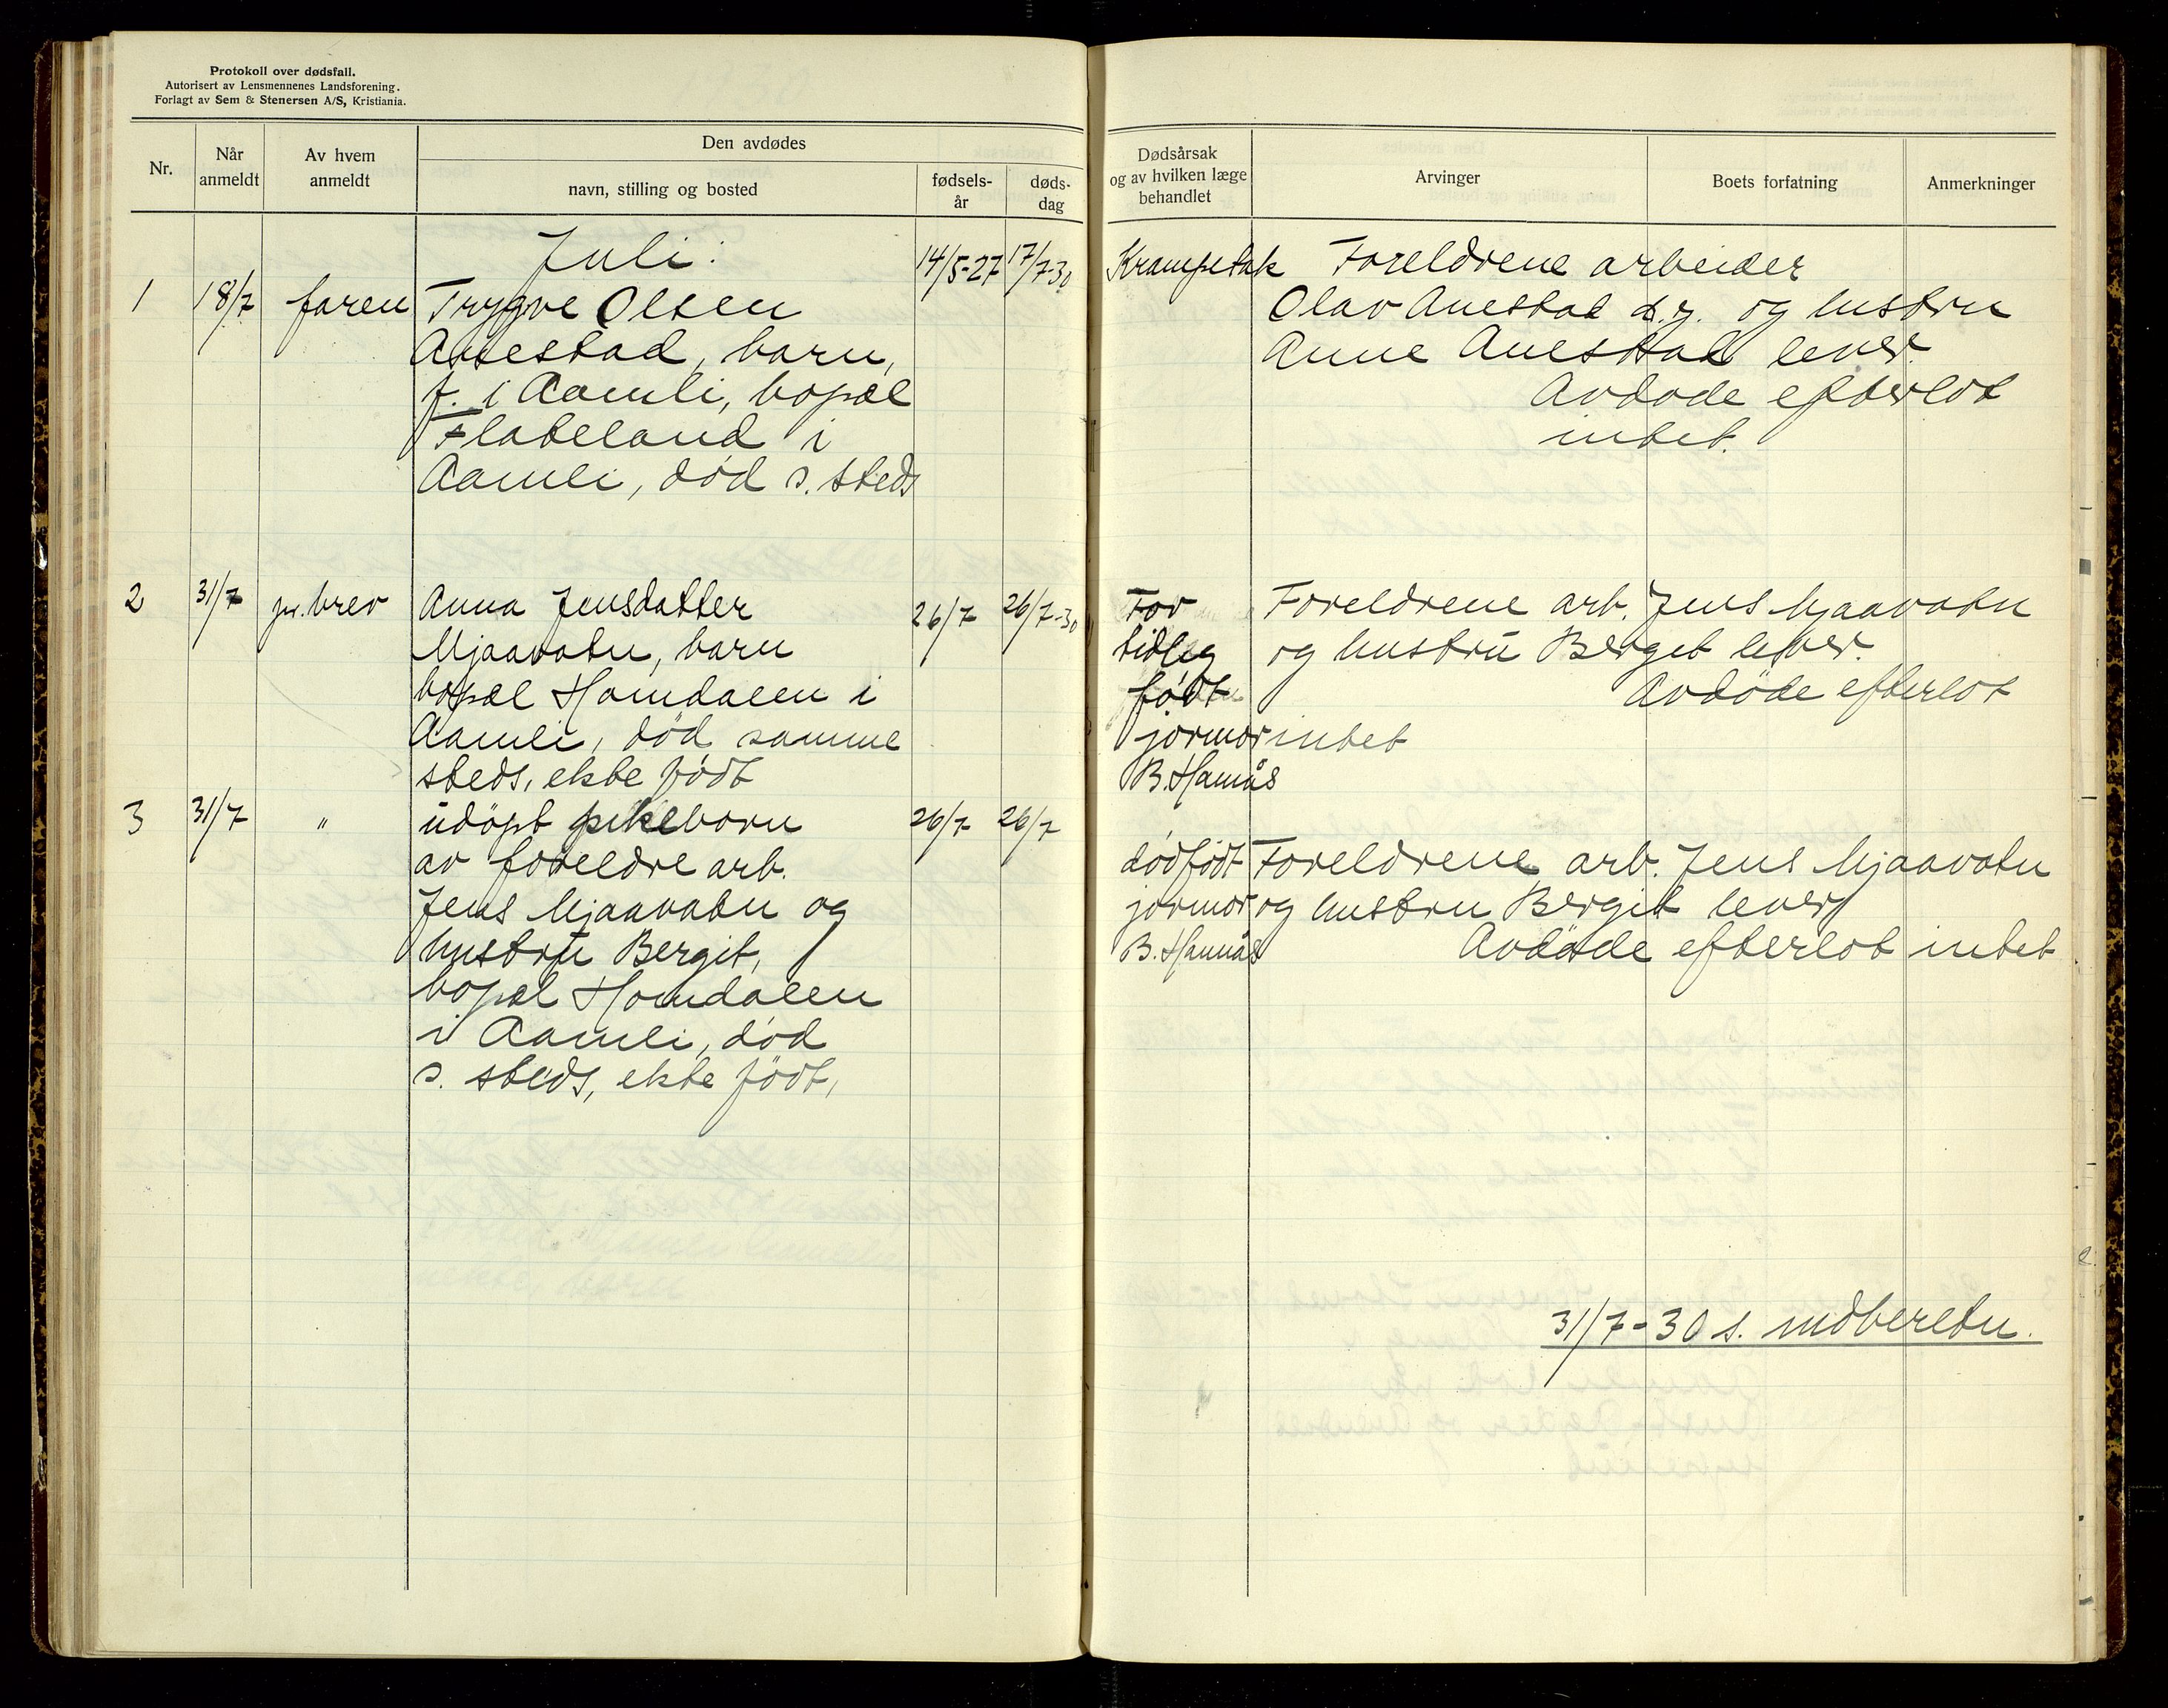 Protokoll over dødsfall.
Autorisert av Lensmennenes Landsforening.
Forlagt av Sem & Stenersen A/S, Kristiania.
Nr.
Når anmeldt
Av hvem anmeldt
Den avdødes
navn, stilling og bosted
fødsels-år
døds-dag
Dødsårsak og av hvilken læge behandlet
Arvinger
Boets forfatning
Anmerkninger
Juli:
1 18/7 faren Trygve Olsen 14/5-27 17/7-30
barn,
f. i Aamli, bopæl
Flateland i
Aamli, død s. steds
Krampetak Foreldrene arbeider
Olav Anestad d.y. og hustru
Anne Anestad lever.
Avdøde efterlot
intet.
2 31/7 pr. brev Anna Jensdatter 26/7 26/7-30
Mjaavatn, barn
bopæl Homdalen i
Aamli, død samme
steds, ekte født
For Foreldrene arb. Jens Mjaavatn
tidleg og hustru Berget lever.
født Avdöde efterlot
jormor intet
B. Hamås
3 31/7 " udöpt pikebarn 26/7 26/7
av foreldre arb.
Jens Mjaavatn og
hustru Bergit,
bopæl Homdalen
i Aamli, død
s. steds, ekte født,
dødfødt Foreldrene arb. Jens Mjaavatn
jormor og hustru Bergit lever
B. Hamnås Avdøde efterlot intet
31/7-30 s. indberetn.